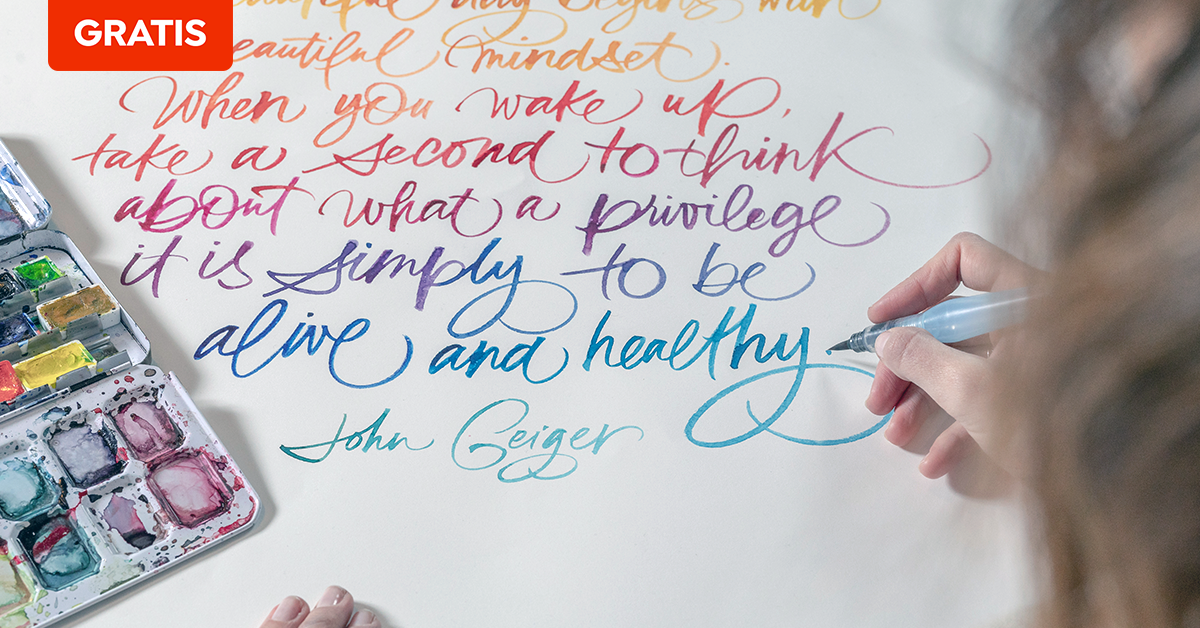 GRATIS
beautiful day begins with
beautiful mindset.
When you wake up,
take a second to think
about what a privilege
it is simply to be
alive and healthy.
John Geiger